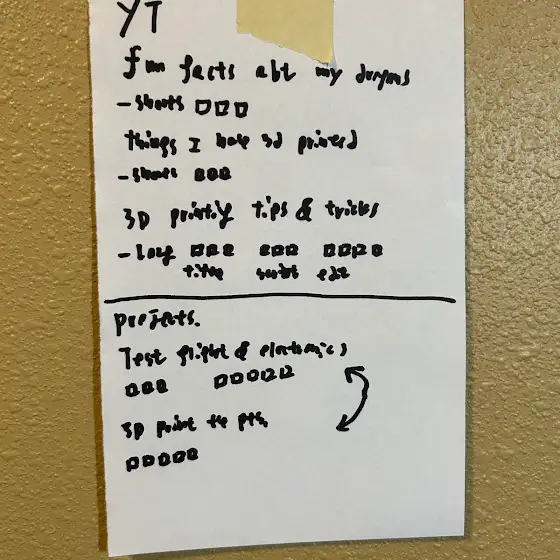 YT
fun facts abt my
- shorts
things I have 3d printed
- shorts
3D printing tips & tricks
- long
script edit
projects.
Test flight & electronics
3D print the pts.